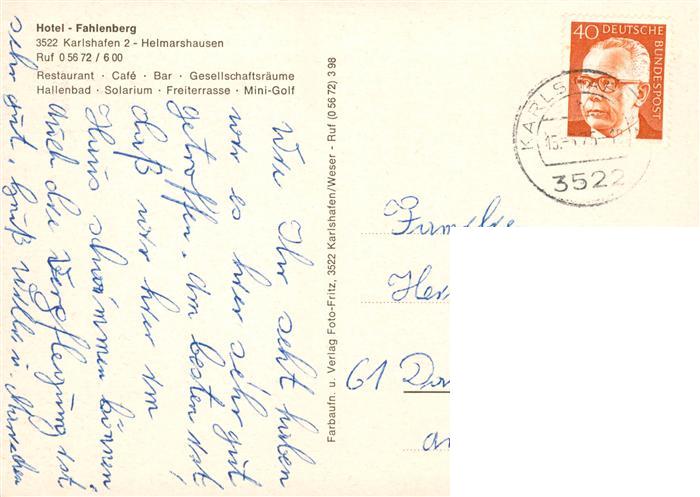 Hotel - Fahlenberg
3522 Karlshafen 2 - Helmarshausen
Ruf 0 56 72 / 6 00
Restaurant · Café · Bar · Gesellschaftsräume
Hallenbad · Solarium · Freiterrasse · Mini-Golf
Wie Ihr seht haben
wir es hier sehr gut
getroffen. Am besten ist
daß wir hier im
Haus schwimmen können
Auch die Verpflegung ist
sehr gut, Gruß Willi u. Mariechen
Farbaufn. u. Verlag Foto-Fritz, 3522 Karlshafen/Weser - Ruf (0 56 72) 3 98
40 DEUTSCHE BUNDESPOST
KARLSHAFEN 1
3522
Familie
Her
61 Da